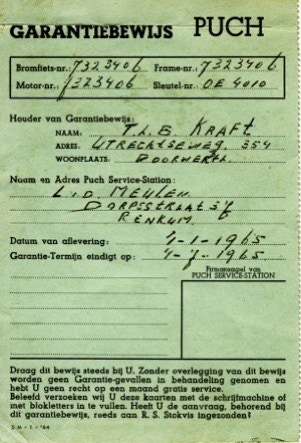 GARANTIEBEWIJS PUCH
Bromfiets-nr.: 7323406 Frame-nr.: 7323406
Motor-nr.: 7323406 Sleutel-nr.: OE 4010
Houder van Garantiebewijs:
NAAM: T.L.B. KRAFT
ADRES: UTRECHTSEWEG. 354
WOONPLAATS: DOORWERTH.
Naam en Adres Puch Service-Station:
L.v.d. MEULEN.
DORPSSTRAAT
RENKUM.
Datum van aflevering: 4-1-1965
Garantie-Termijn eindigt op: 4-7-1965
Firmastempel van
PUCH SERVICE-STATION
Draag dit bewijs steeds bij U. Zonder overlegging van dit bewijs
worden geen Garantie-gevallen in behandeling genomen en
hebt U geen recht op een maand gratis service.
Beleefd verzoeken wij U deze kaarten met de schrijfmachine of
met blokletters in te vullen. Heeft U de aanvraag, behorend bij
dit garantiebewijs, reeds aan R. S. Stokvis ingezonden?
S M - 1 - '64